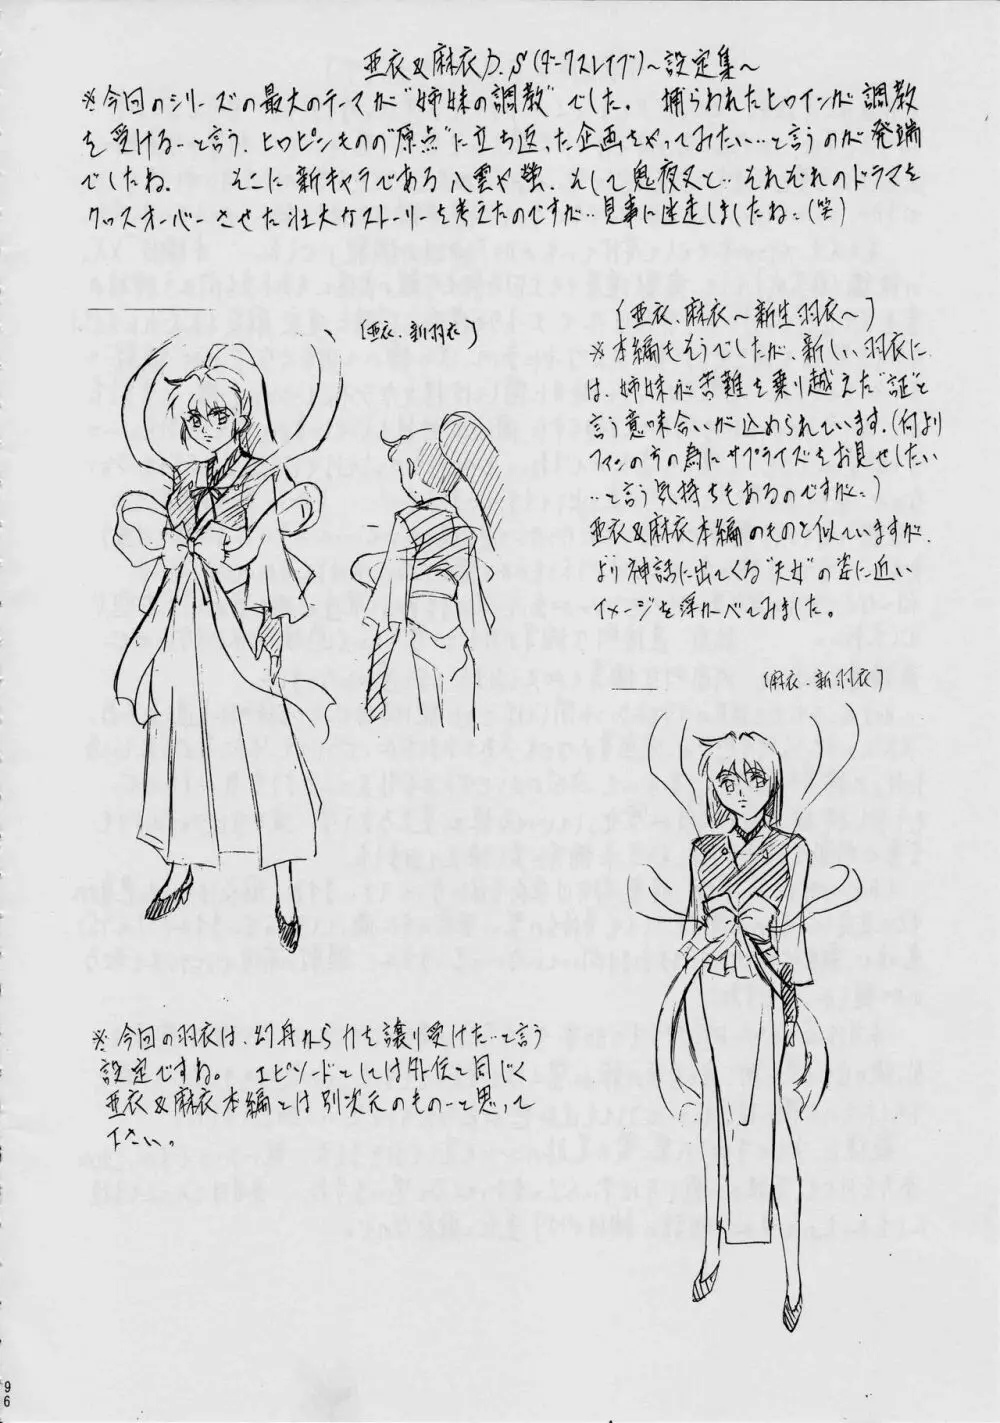 亜衣&麻衣D.S(ダークスレイブ)～設定集～
※今回のシリーズの最大のテーマが"姉妹の調教"でした。 捕らわれたヒロインが調教
を受ける…と言う、ヒロピンものの"原点"に立ち返った企画をやってみたい…と言うのが発端
でしたね。 そこに新キャラである八雲や蛍、そして鬼夜叉と…それぞれのドラマを
クロスオーバーさせた壮大なストーリーを考えたのですが…見事に迷走しましたね…(笑)
[亜衣、新羽衣]
[亜衣、麻衣～新生羽衣～]
※本編もそうでしたが、新しい羽衣に
は、姉妹が苦難を乗り越えた"証"と
言う意味合いが込められています。(何より
ファンの方の為にサプライズをお見せしたい
…と言う気持ちもあるのですが…)
亜衣&麻衣本編のものと似ていますが、
より神話に出てくる"天女"の姿に近い
イメージを浮かべてみました。
[麻衣、新羽衣]
※今回の羽衣は、幻舟から力を譲り受けた…と言う
設定ですね。 エピソードとしては外伝と同じく
亜衣&麻衣本編とは別次元のもの…と思って
下さい。
96